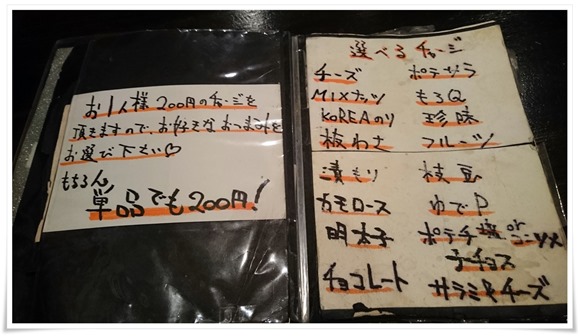 お1人様200円のチャージを
頂きますので、お好きなおつまみを
お選び下さい♡
もちろん
単品でも200円!
選べるチャージ
チーズ ポテサラ
MIXナッツ もろQ
KOREAのり 珍味
板わさ フルーツ
漬もり 枝豆
カモロース ゆでP
明太子 ポテチ塩orコンソメ
ナチョス
チョコレート サラミ&チーズ